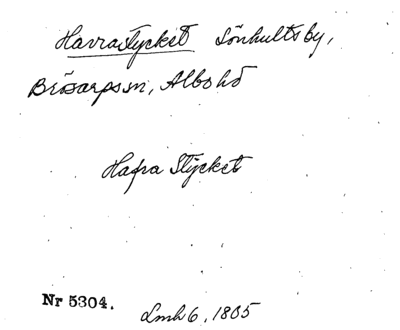 Havrastycket Lönhultsby,
Brösarps sn, Albo hd
Hafra Stycket
Nr 5304. Lmh 6, 1805